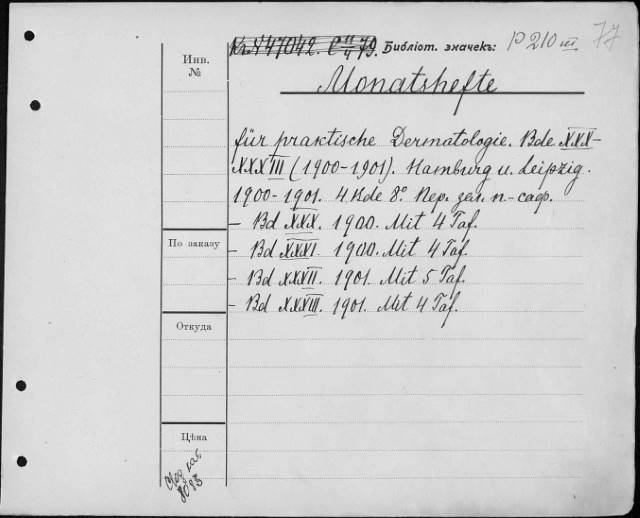 Кк.447042. C 11/4 79. Библіот. значекъ: P 210 III 77
Инв. №
Monatshefte
für praktische Dermatologie. Bde XXX-
XXXIII (1900-1901). Hamburg u. Leipzig.
1900-1901. 4 Bde 8°. Пер. зел. п-саф.
- Bd XXX. 1900. Mit 4 Taf.
По заказу
- Bd XXXI. 1900. Mit 4 Taf.
- Bd XXXII. 1901. Mit 5 Taf.
- Bd XXXIII. 1901. Mit 4 Taf.
Откуда
Цѣна
8093